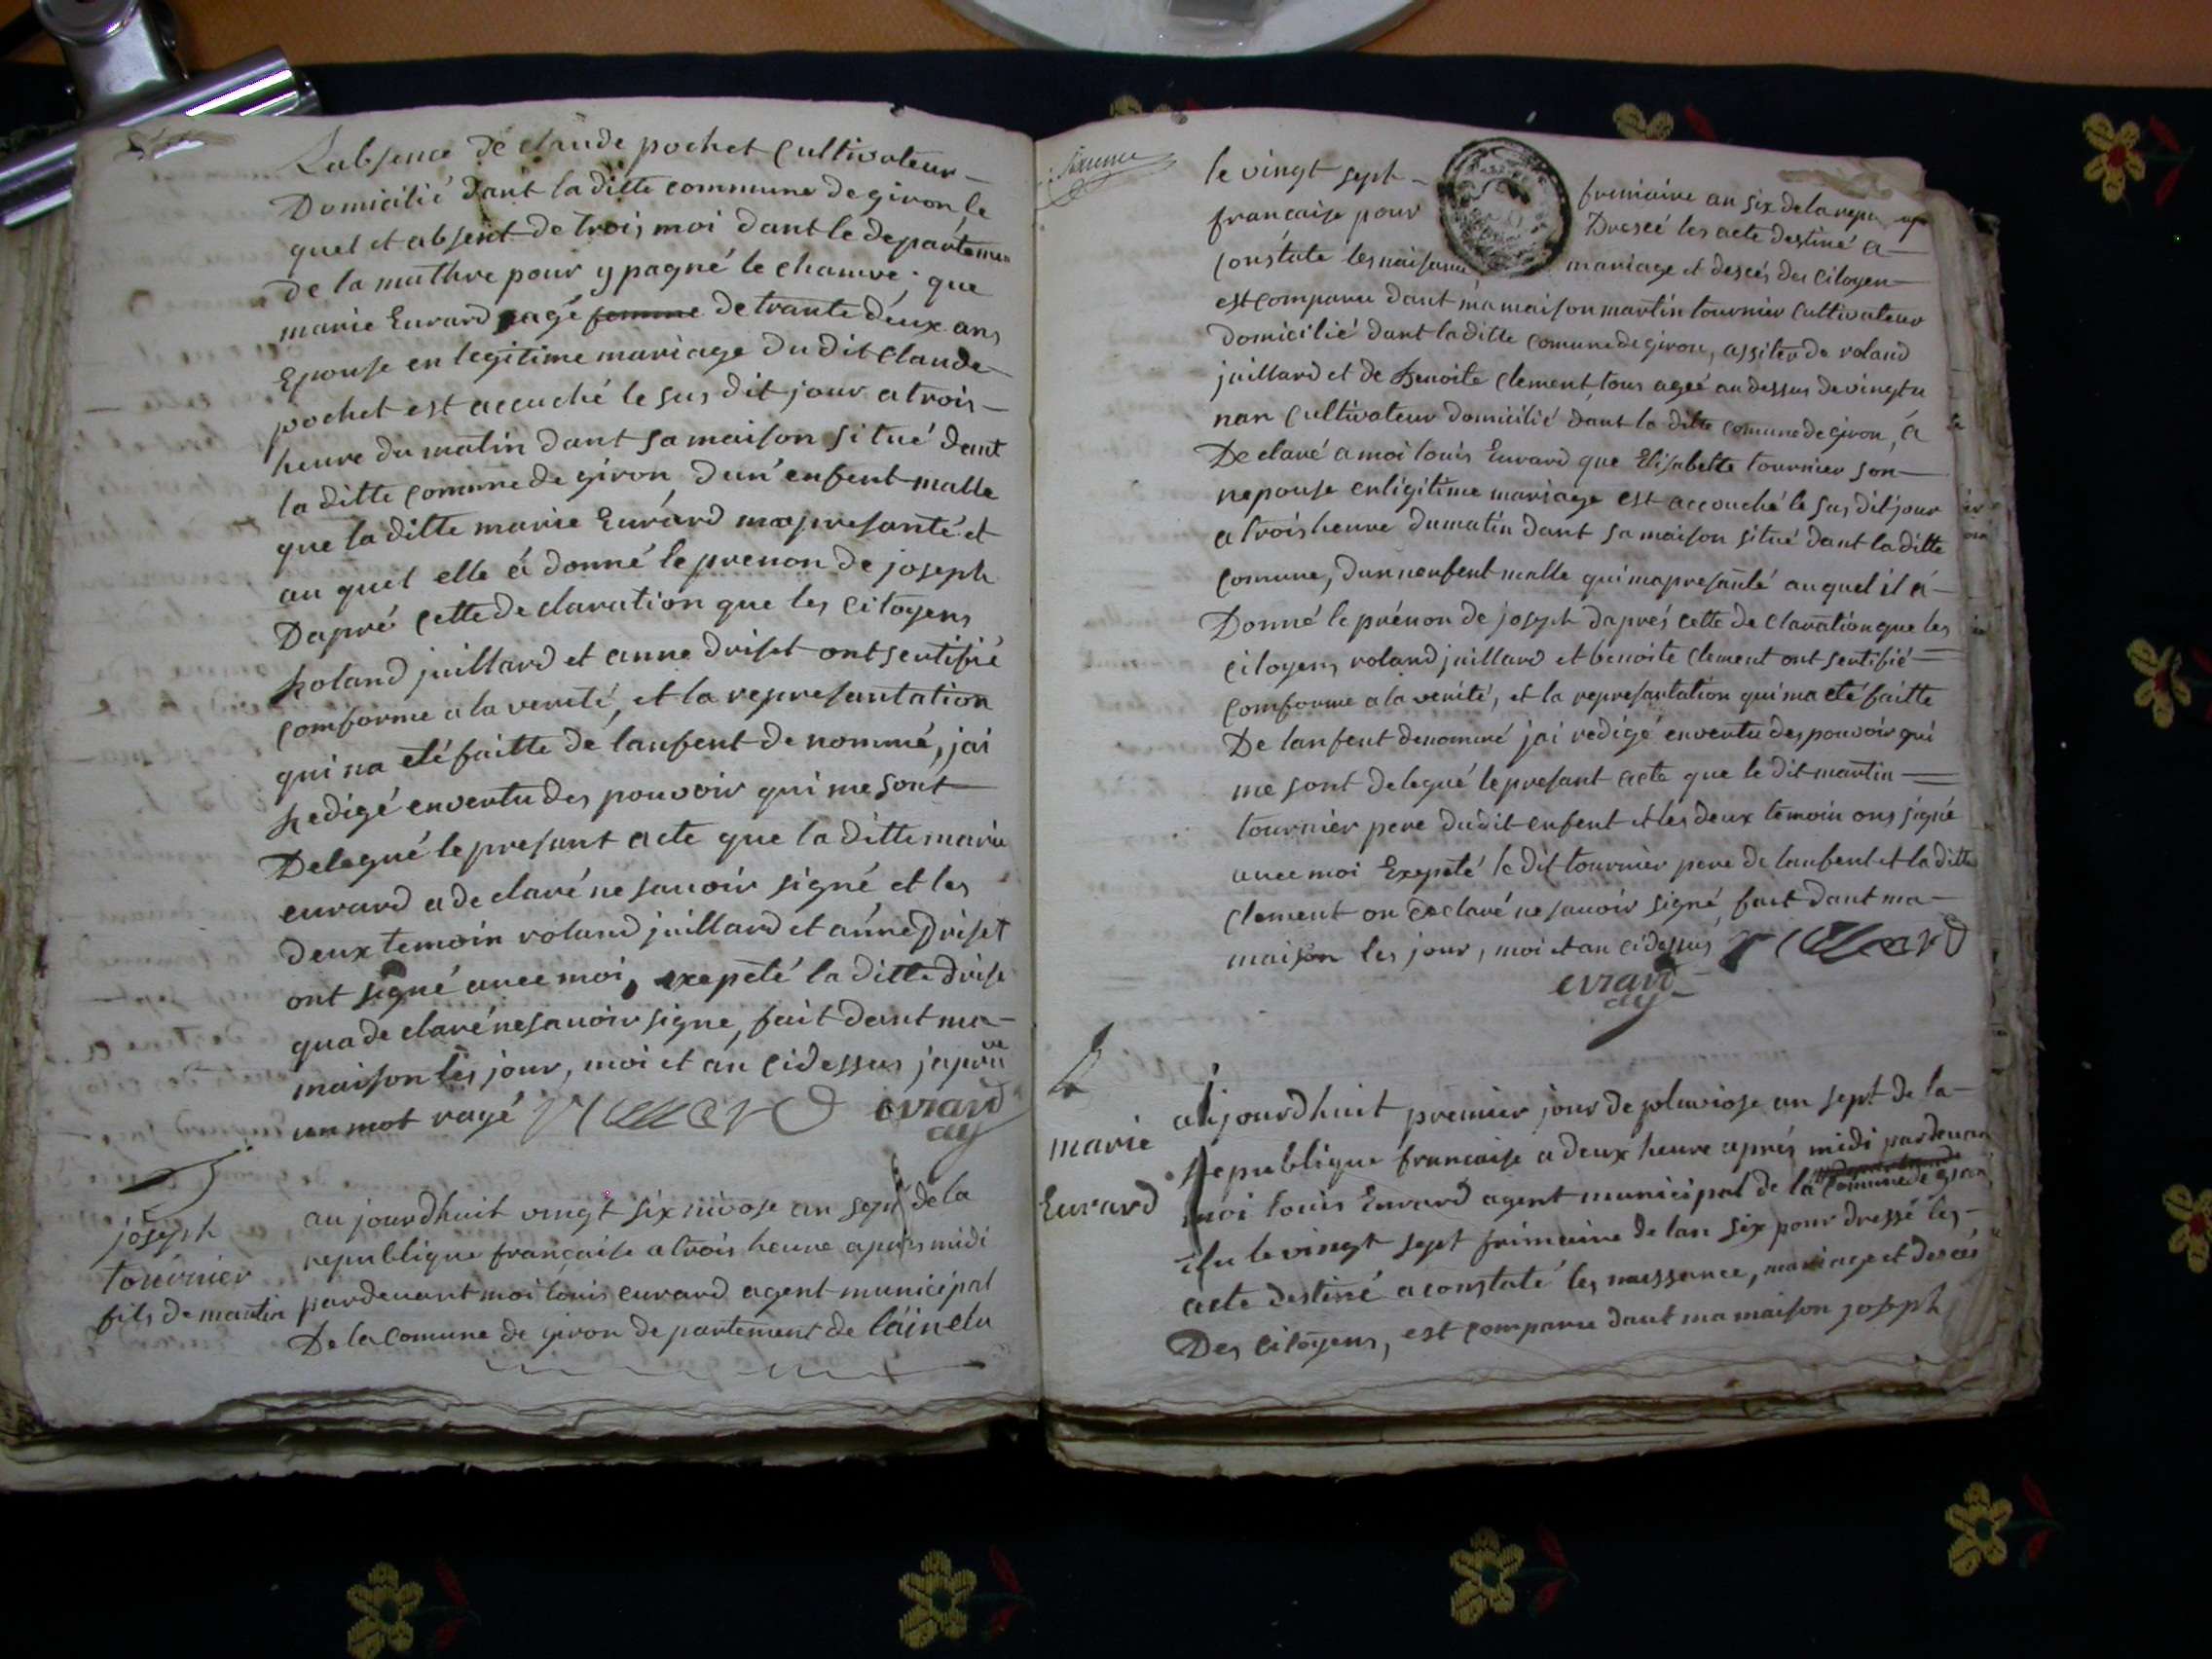 L'absence de claude pochet cultivateur
Domicilié dant la ditte commune de giron, le
quel et absent de trois moi dant le departemen
de la mathre pour y pagné le chamvre; que
marie Evrard agé femme de trante deux ans
Epouse en legitime mariage du dit claude
pochet est accuché le sus dit jour a trois
heure du matin dant sa maison situé dant
la ditte comune de giron dun enfent malle
que la ditte marie Evrard ma presanté et
au quel elle á donné le prenon de joseph
Dapré cette declaration que les citoyens
Roland juillard et anne driset ont sertifié
comforme a la verité, et la represantation
qui na eté faitte de lanfent denommé, jai
Redigé en vertu des pouvoir qui me sont
Delegué le presant acte que la ditte marie
evrard a declaré ne savoir signé et les
deux temoin roland juillard et anne driset
ont signé avec moi, exepeté la ditte drise
qua declaré ne savoir signe, fait dant ma
maison les jour, moi et an cidessus japru
ve
un mot rayé juillard evrard
ag
joseph
tournier
fils de martin
au jourdhuit vingt six nivose an sept de la
republique francaise a trois heure apres midi
pardevant moi louis evrard agent municipal
De la comune de giron departement de lain elu
le vingt sept frimaire an six de la repu
francaise pour Dressé les acte destiné a
constaté les naisance mariage et descés des citoyen
est comparu dant ma maison martin tournier cultivateur
domicilié dant la ditte comune de giron, assiter de roland
juillard et de Benoite clement, tous ageé au dessus de vingt u
nan cultivateur domicilié dant la ditte comune de giron, á
Declaré a moi louis Evrard que Elisabette tournier son
nepouse en ligitime mariage est accouché le sus dit jour
a trois heure du matin dant sa maison situé dant la ditte
comune, dun nenfent malle qui ma presanté au quel il á
Donné le prénon de joseph daprés cette declaration que les
citoyens roland juillard et benoite clement ont sertifié
comforme a la verité, et la represantation qui ma eté faitte
De lanfent denommé jai redigé en vertu des pouvoir qui
me sont delegué le presant acte que le dit martin
tournier pere du dit enfent et les deux temoin ons signé
avec moi Exepeté le dit tournier pere de lanfent et la ditte
clement on declaré ne savoir signé, fait dant ma
maison les jour, moi et an cidessus juillard
evrard
ag
marie
Evrard
aujourdhuit premier jour de pluviose an sept de la
Republique francaise a deux heure aprés midi pardevan
moi louis Evrard agent municipal de la comune de giron
élu le vingt sept frimaire de lan six pour dressé les
acte destiné a constaté les naissance, mariage et descés
Des citoyens, est comparu dant ma maison joseph